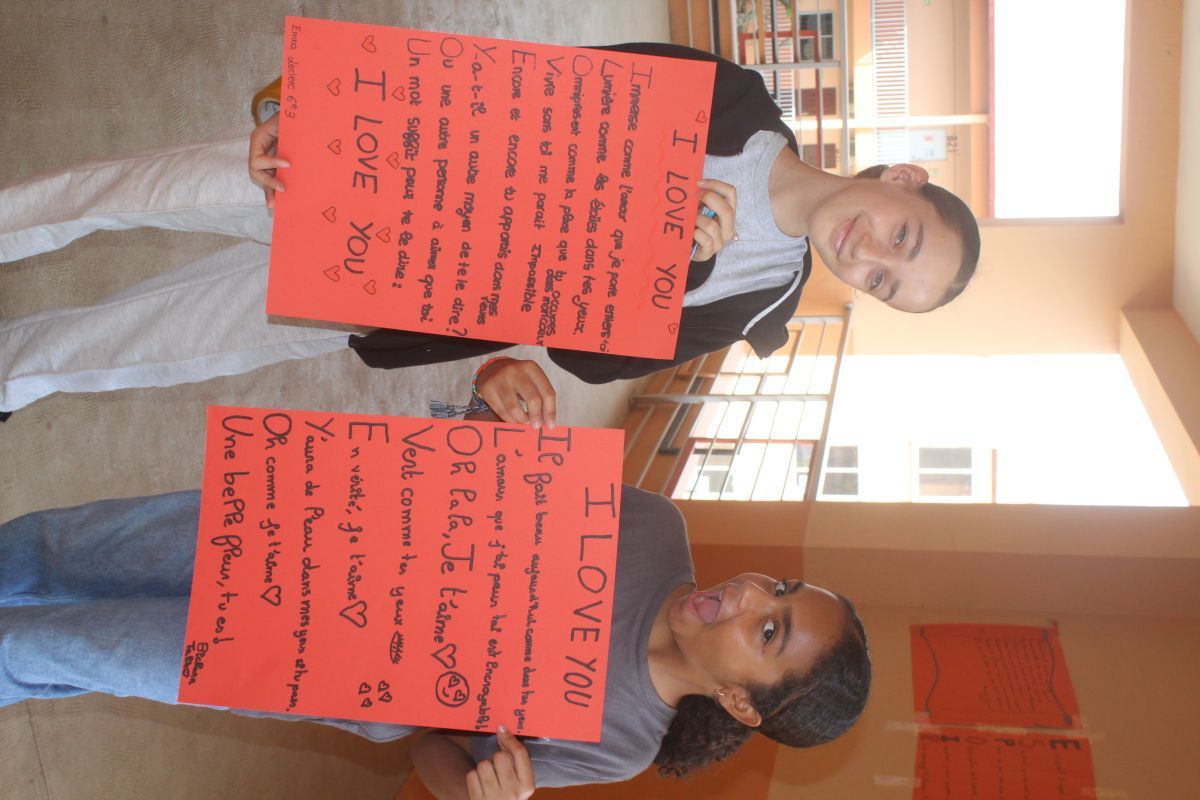 I LOVE YOU
Immense comme l'amour que je porte envers toi
Lumière comme les étoiles dans tes yeux
Omniprésent comme la place que tu occupes
dans mon cœur
Vivre sans toi me parait impossible
Encore et encore tu apparais dans mes
rêves
Y-a-t-il un autre moyen de te le dire ?
Ou une autre personne à aimer que toi
Un mot suffit pour te le dire :
I LOVE YOU
Emna Leclerc 6e3
I LOVE YOU
Il fait beau aujourd'hui comme dans tes yeux.
L'amour que j'ai pour toi est incroyable!
Oh la la, Je t'aime
Vent comme tes yeux
En vérité, je t'aime
Y'aura de l'eau dans mes yeux si tu pars,
Oh comme je t'aime
Une belle fleur, tu es!
E
S
P
O
I